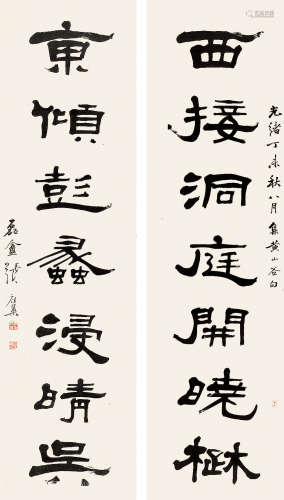 西接洞庭開曉楚
光緒丁未秋八月集黃山谷句
東傾彭蠡浸晴吳
磊盦張祖翼